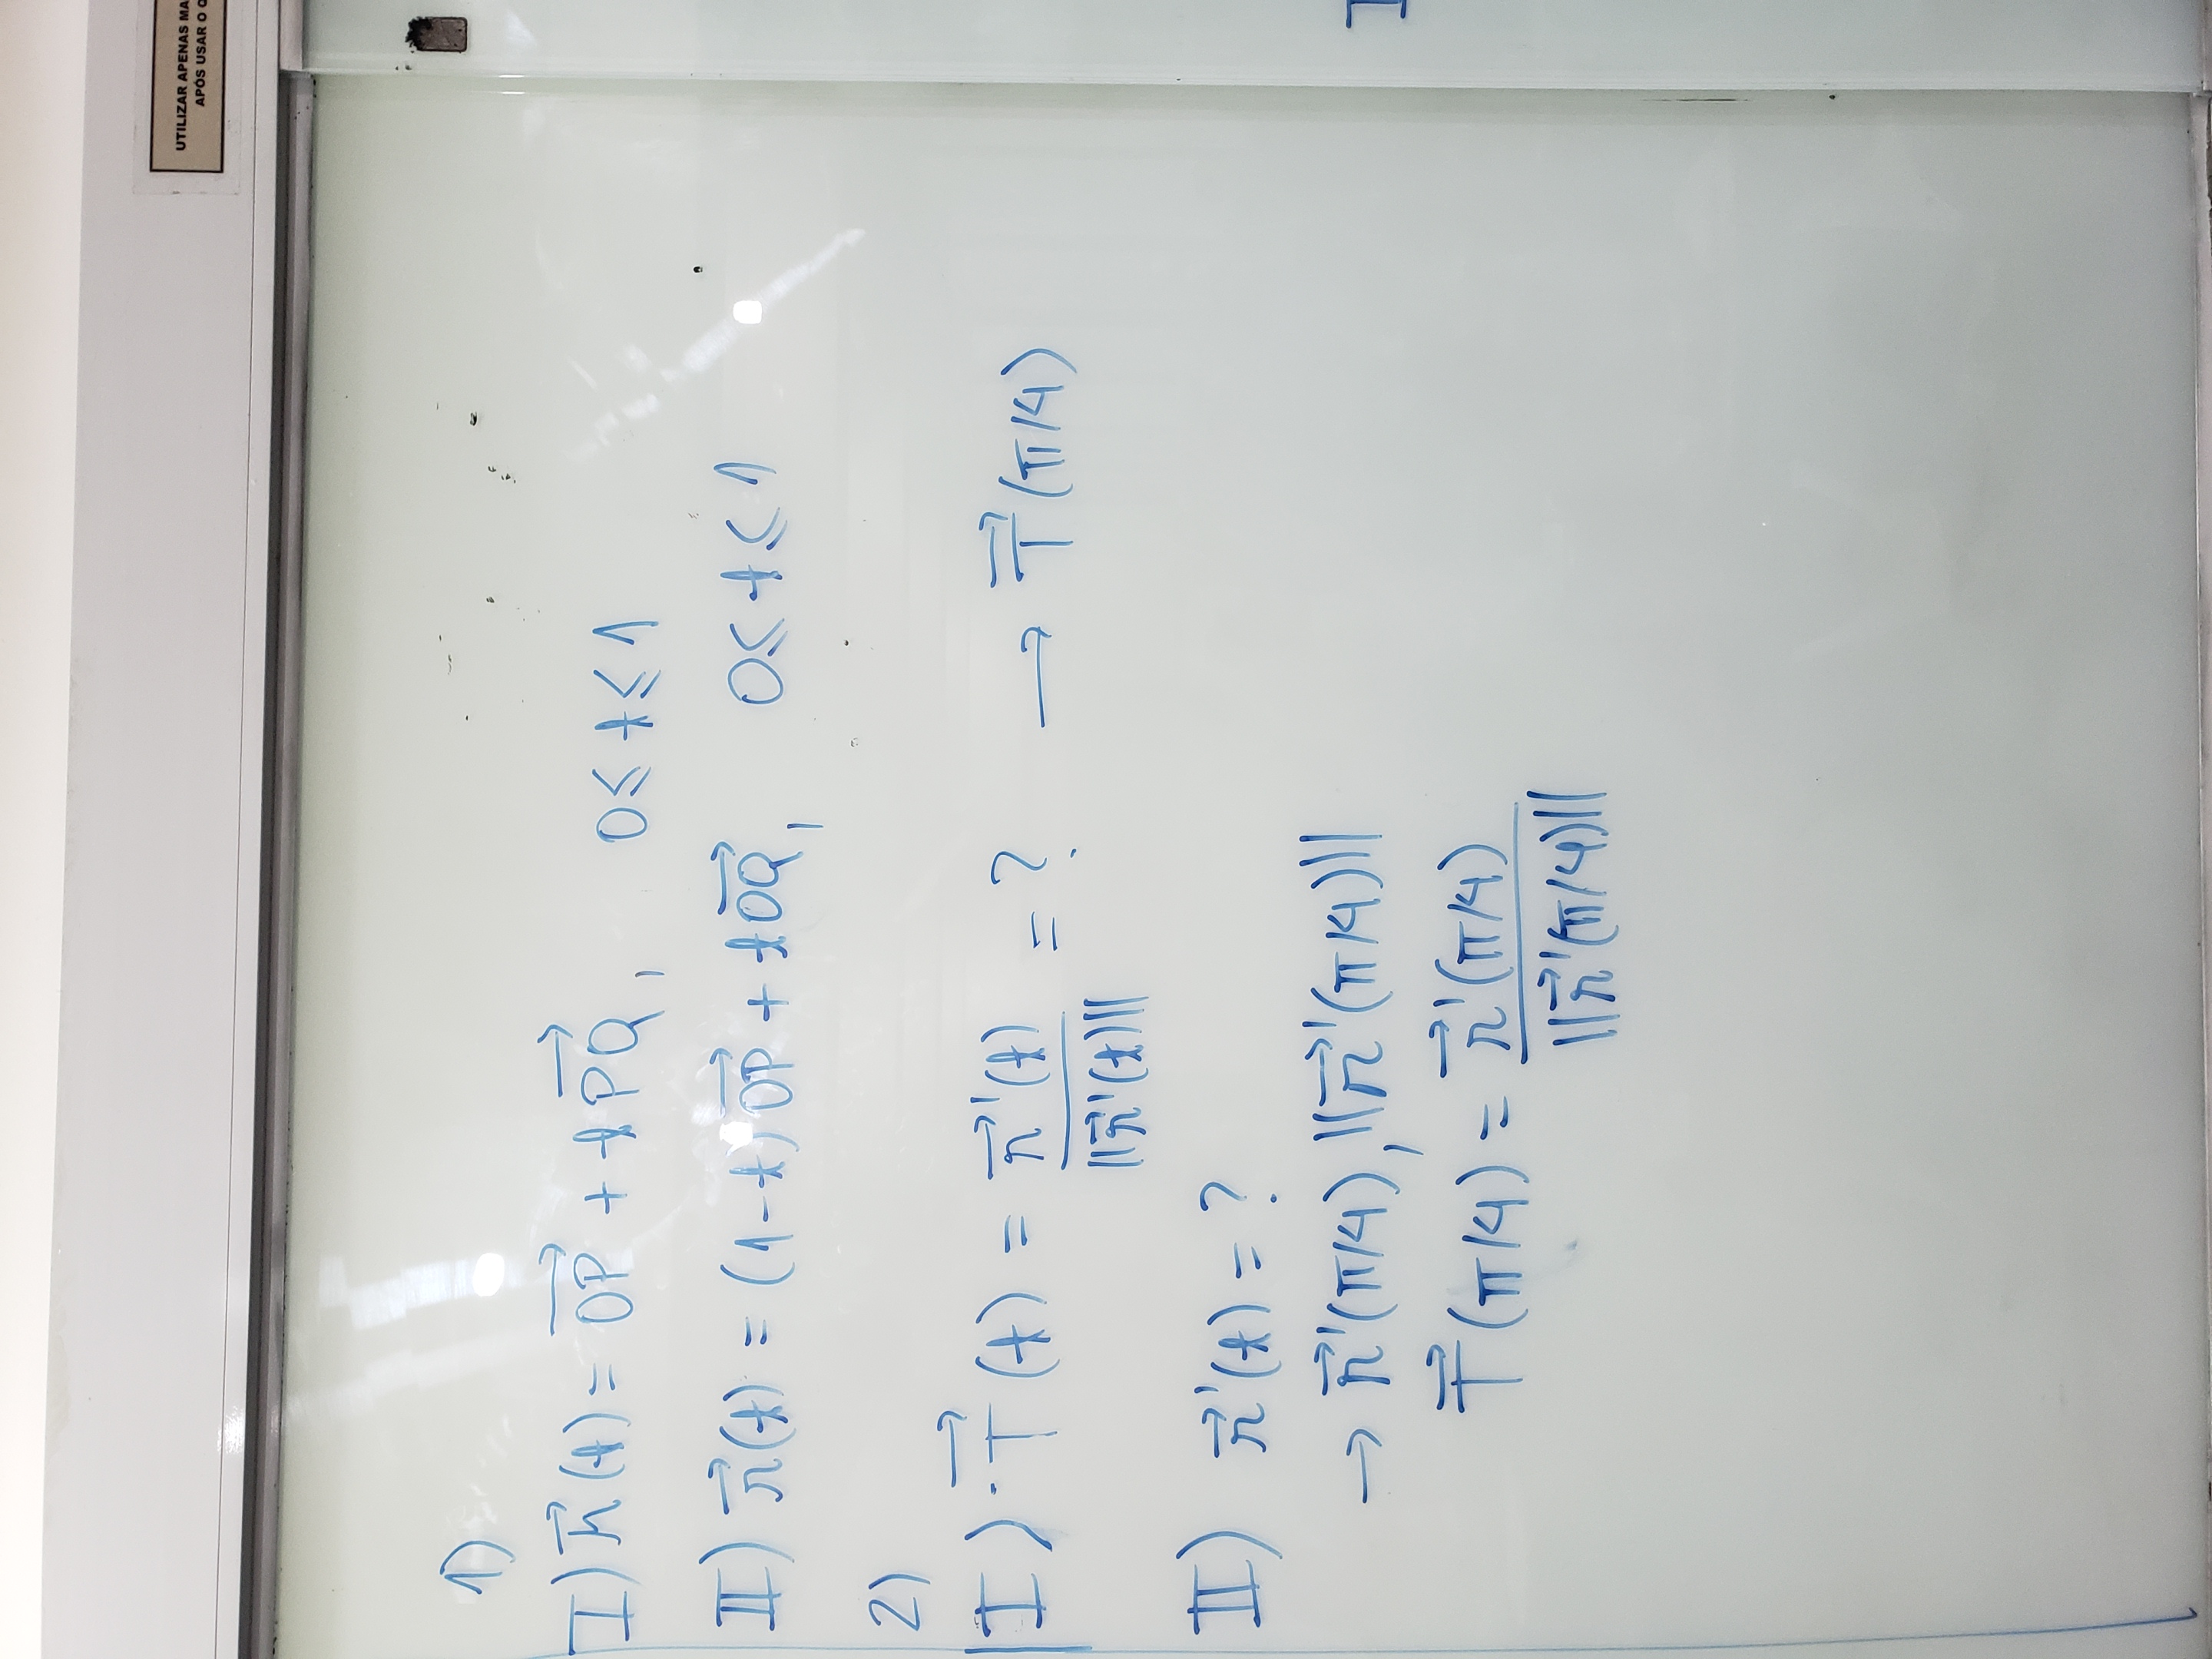 UTILIZAR APENAS MA
APÓS USAR O Q
1)
I) r⃗(t) = OP⃗ + t PQ⃗, 0 ≤ t ≤ 1
II) r⃗(t) = (1-t) OP⃗ + t OQ⃗, 0 ≤ t ≤ 1
2)
I) · T⃗(t) = r⃗'(t) / ||r⃗'(t)|| = ? → T⃗(π/4)
II) r⃗'(t) = ?
→ r⃗'(π/4), ||r⃗'(π/4)||
T⃗(π/4) = r⃗'(π/4) / ||r⃗'(π/4)||